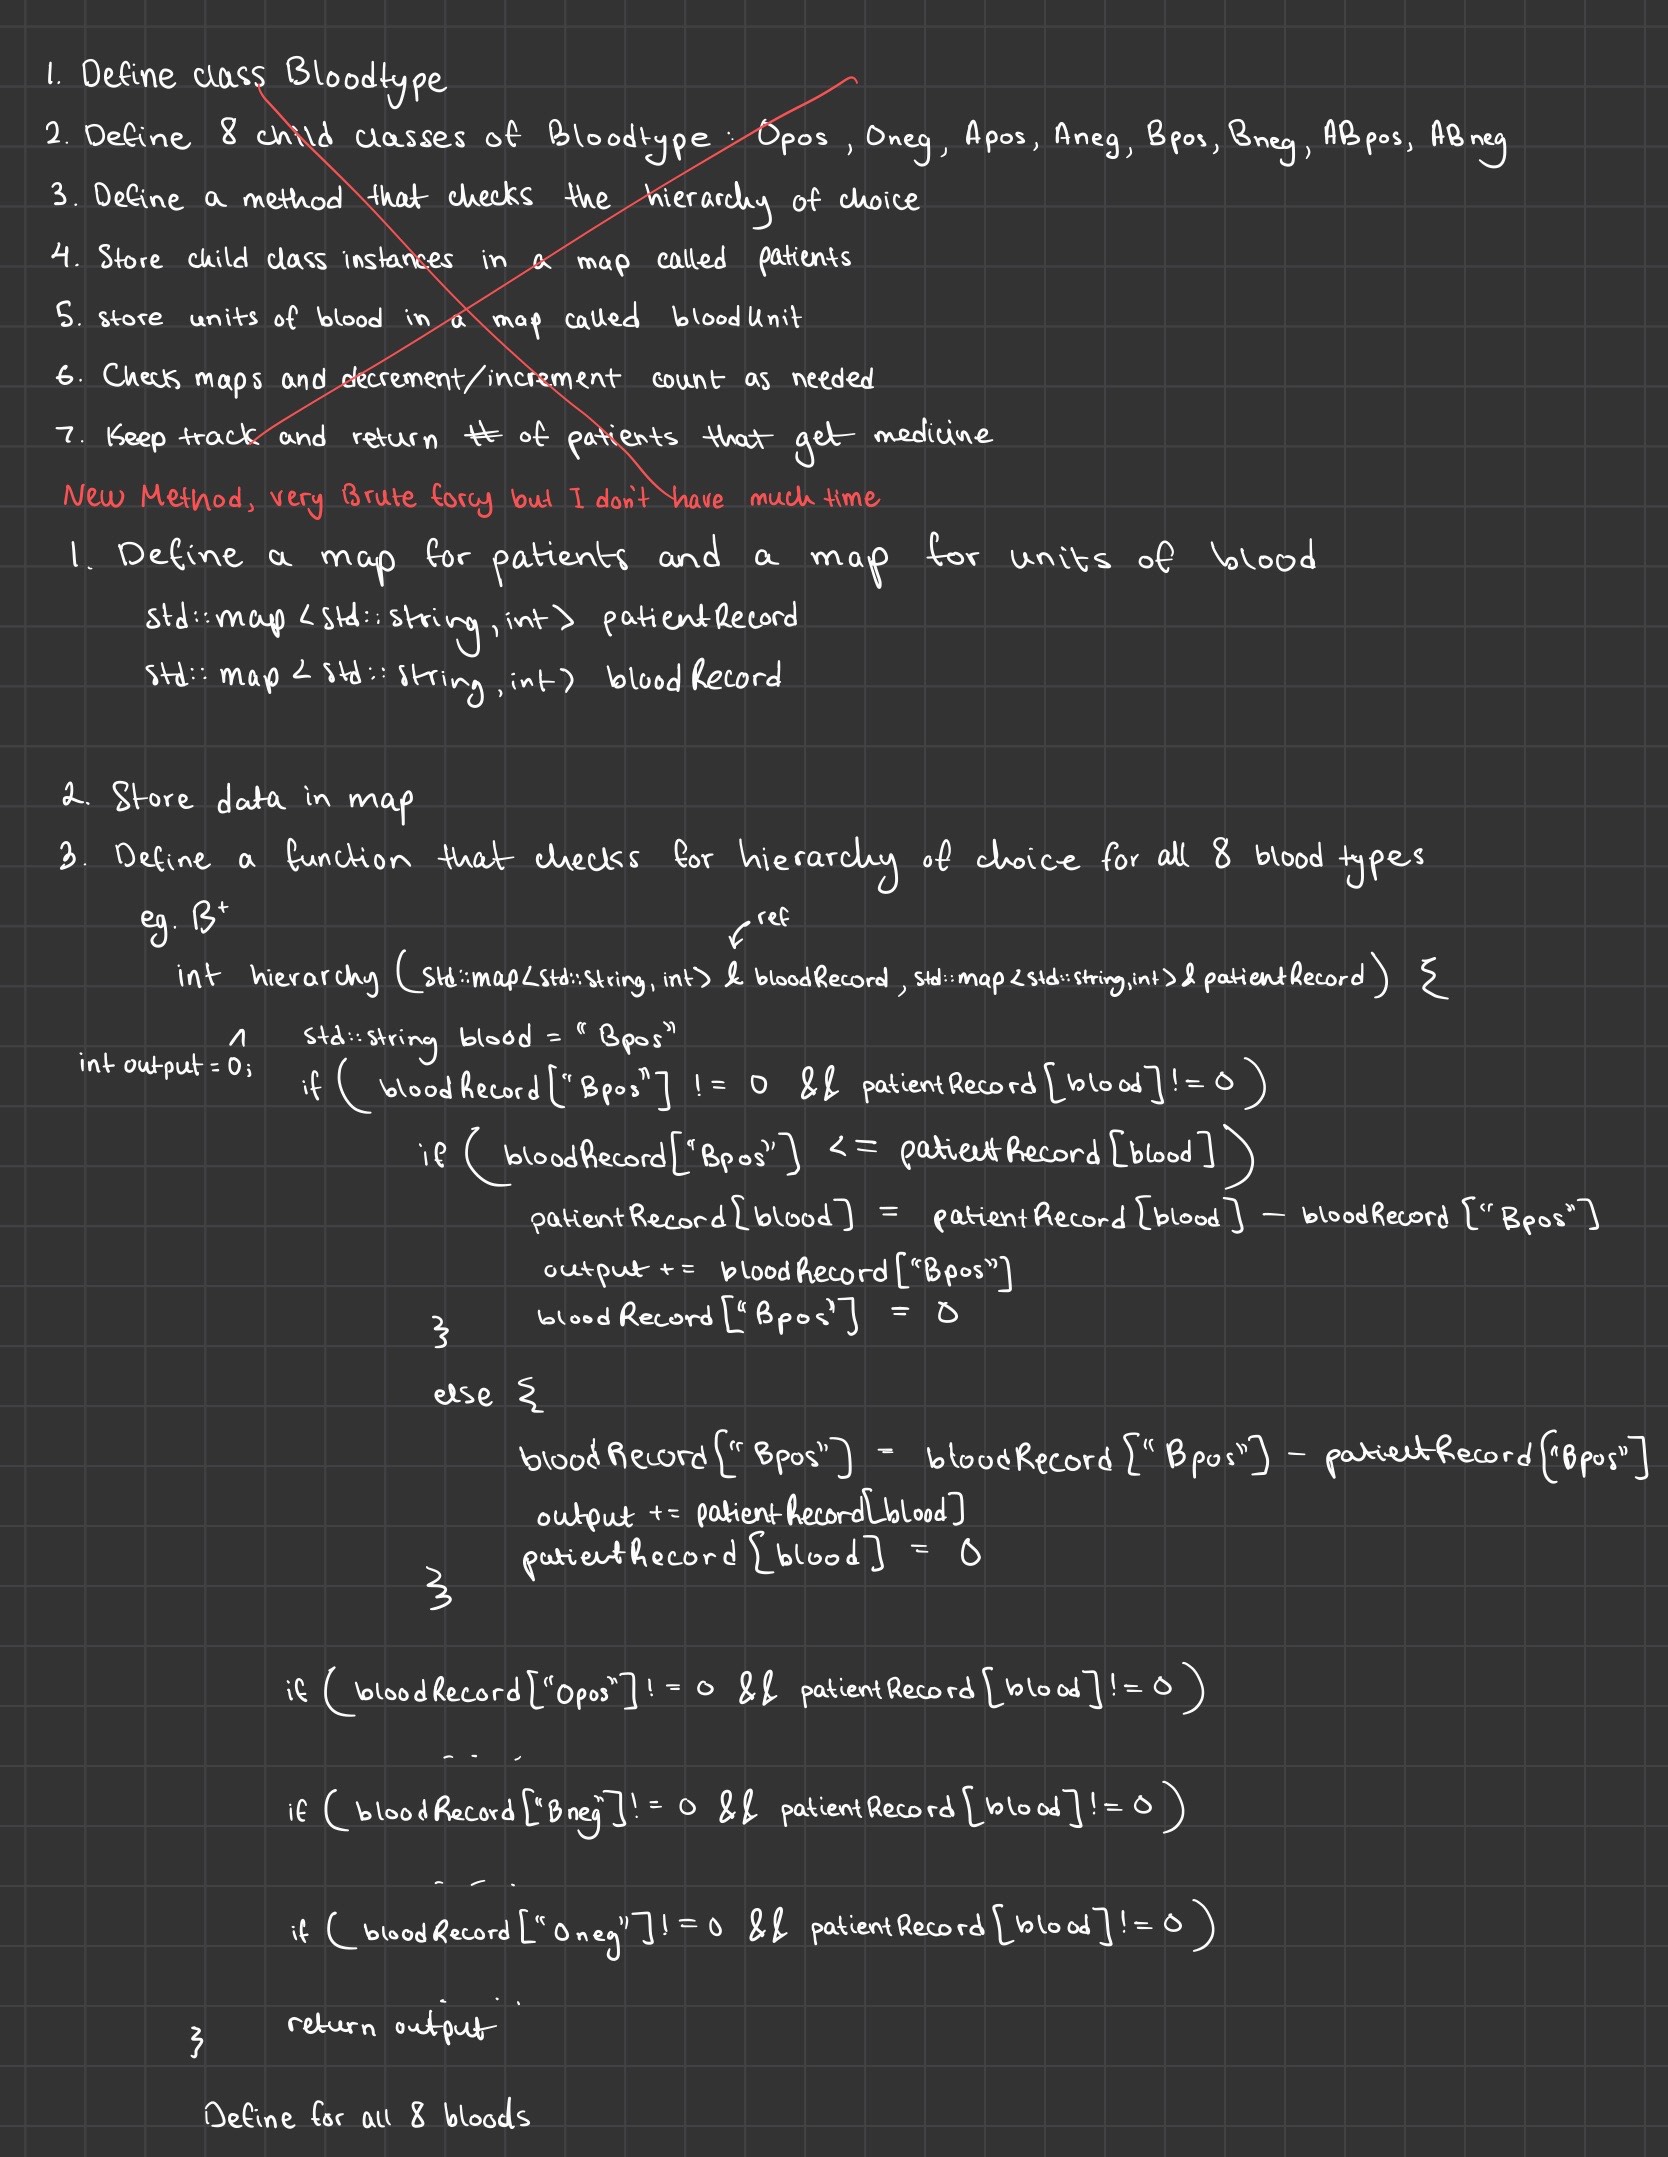 1. Define class Bloodtype
2. Define 8 child classes of Bloodtype: Opos, Oneg, Apos, Aneg, Bpos, Bneg, ABpos, ABneg
3. Define a method that checks the hierarchy of choice
4. Store child class instances in a map called patients
5. store units of blood in a map called bloodUnit
6. Check maps and decrement/increment count as needed
7. Keep track and return # of patients that get medicine
New Method, very Brute forcy but I don't have much time
1. Define a map for patients and a map for units of blood
std::map <std::string, int> patientRecord
std::map <std::string, int> bloodRecord
2. Store data in map
3. Define a function that checks for hierarchy of choice for all 8 blood types
eg. B+
ref
int hierarchy (std::map<std::string, int> & bloodRecord, std::map<std::string,int>& patientRecord) {
std::string blood = "Bpos"
int output = 0;
if ( bloodRecord["Bpos"] != 0 && patientRecord[blood]!=0)
if ( bloodRecord["Bpos"] <= patientRecord[blood])
patientRecord[blood] = patientRecord[blood] - bloodRecord["Bpos"]
output += bloodRecord["Bpos"]
bloodRecord["Bpos"] = 0
}
else {
bloodRecord["Bpos"] = bloodRecord["Bpos"] - patientRecord["Bpos"]
output += patientRecord[blood]
patientRecord[blood] = 0
}
if ( bloodRecord["Opos"] != 0 && patientRecord[blood]!=0)
...
if ( bloodRecord["Bneg"] != 0 && patientRecord[blood]!=0)
...
if ( bloodRecord["Oneg"] !=0 && patientRecord[blood]!=0)
...
return output
}
Define for all 8 bloods